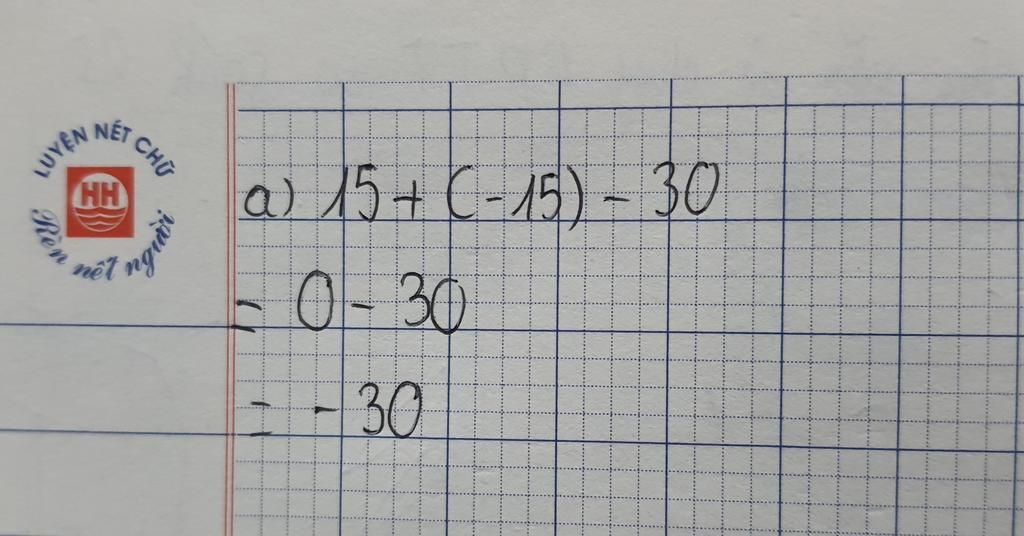 LUYỆN NÉT CHỮ
HH
Rèn nết người
a) 15 + (-15) - 30
= 0 - 30
= - 30